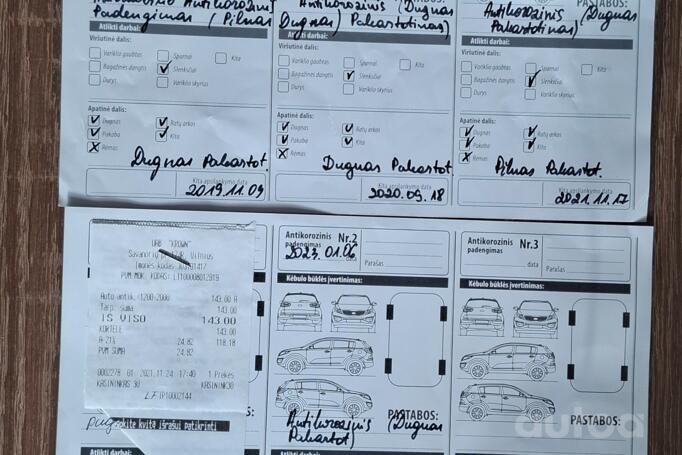 Antikorozinis
Padengimas (Pilnas
Antikorozinis (Dugnas
Dugnas) Pakartotinas)
PASTABOS:
Antikorozinis (Dugnas
Pakartotinas)
Atlikti darbai:
Viršutinė dalis:
Variklio gaubtas
Sparnai
Kita
Bagažinės dangtis
Slenksčiai
Durys
Variklio skyrius
Apatinė dalis:
Dugnas
Ratų arkos
Pakaba
Kita
Rėmas
Dugnas Pakartot.
Kita apsilankymo data
2019.11.09
Atlikti darbai:
Viršutinė dalis:
Variklio gaubtas
Sparnai
Kita
Bagažinės dangtis
Slenksčiai
Durys
Variklio skyrius
Apatinė dalis:
Dugnas
Ratų arkos
Pakaba
Kita
Rėmas
Dugnas Pakartot.
Kita apsilankymo data
2020.09.18
Atlikti darbai:
Viršutinė dalis:
Variklio gaubtas
Sparnai
Kita
Bagažinės dangtis
Slenksčiai
Durys
Variklio skyrius
Apatinė dalis:
Dugnas
Ratų arkos
Pakaba
Kita
Rėmas
Pilnas Pakartot.
Kita apsilankymo data
2021.11.17
UAB "KROWN"
Vilnius
Įmonės kodas
PVM MOK. KODAS: LT100008012919
Auto antik.(1200-2000) 143.00 A
Tarp. suma 143.00
IŠ VISO 143.00
KORTELĖ 143.00
A=21% 24.82 118.18
PVM SUMA 24.82
2021.11.24 17:40 1 Prekės
KASININKAS 30 KASININK30
LF IP10002144
kite kvitą išrašui patikrinti
Antikorozinis Nr.2
padengimas
2023.01.06
Data
Parašas
Kėbulo būklės įvertinimas:
PASTABOS:
Antikorozinis (Dugnas
Pakartot)
Atlikti darbai:
Antikorozinis Nr.3
padengimas
Data
Parašas
Kėbulo būklės įvertinimas:
PASTABOS:
Atlikti darbai:
autoa